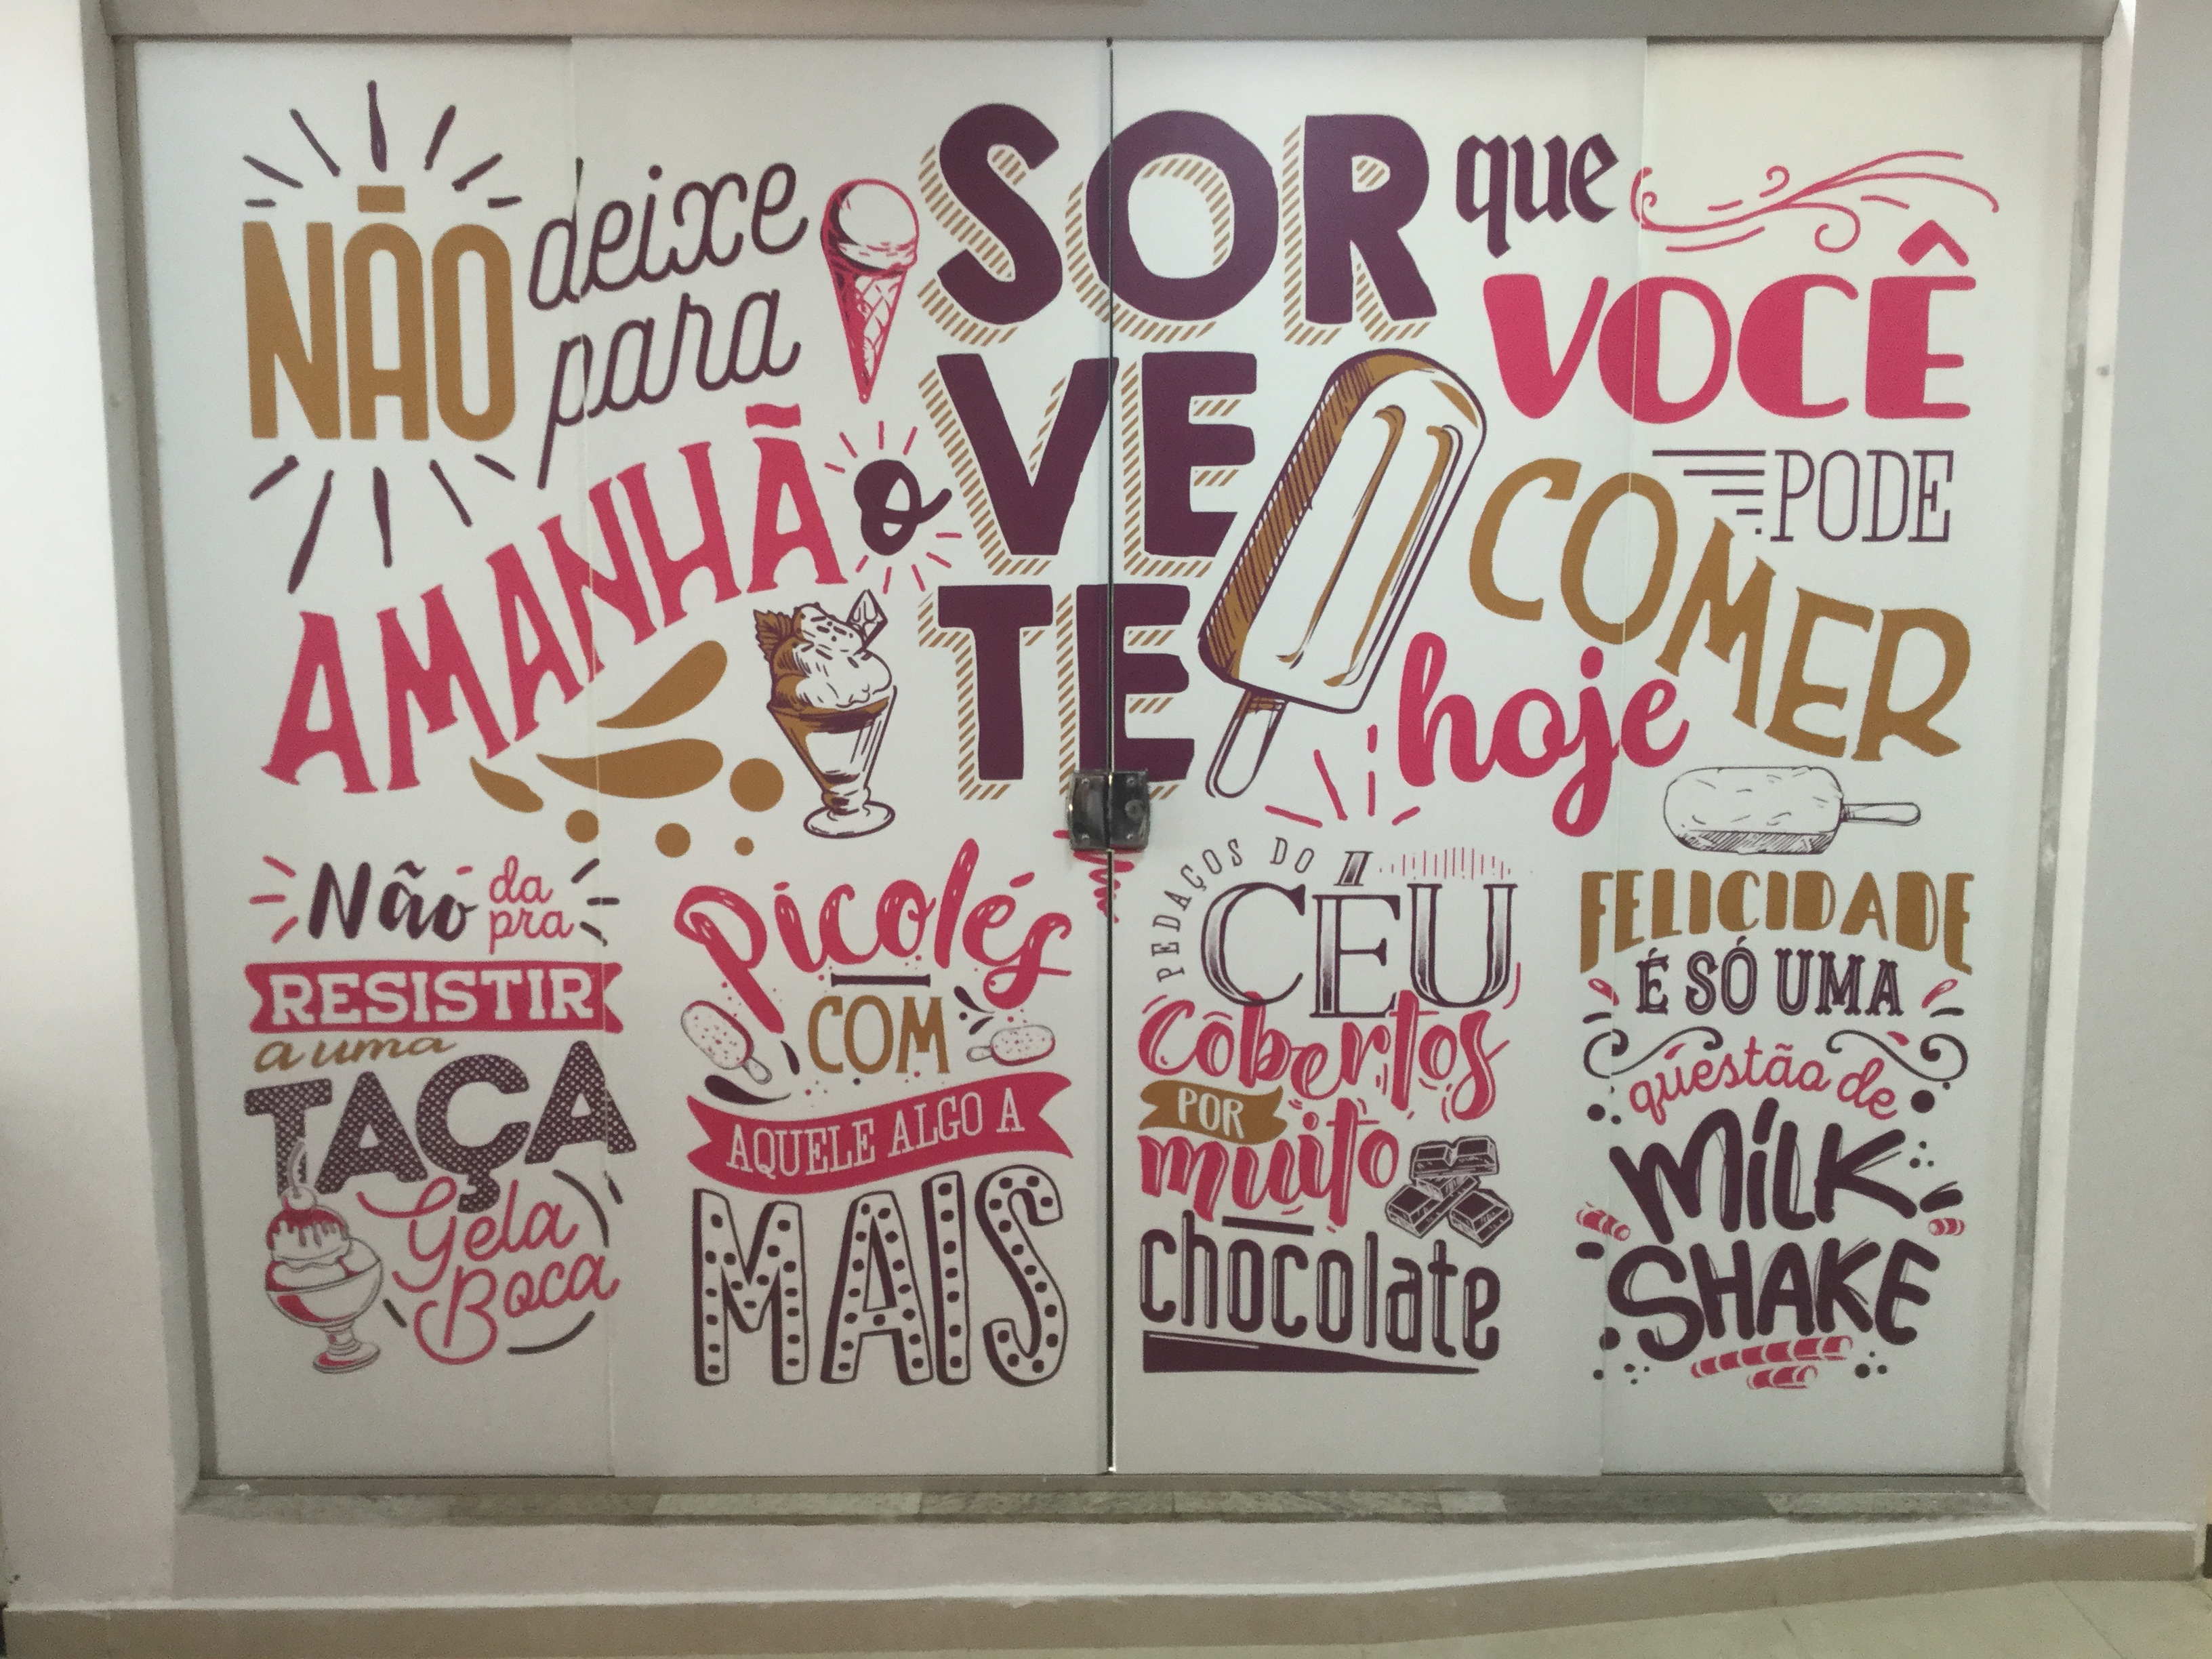 NÃO deixe
para
AMANHÃ o
SOR
VE
TE
que
VOCÊ
PODE
COMER
hoje
Não da
pra
RESISTIR
a uma
TAÇA
Gela
Boca
Picolés
COM
AQUELE ALGO A
MAIS
PEDAÇOS DO
CÉU
Cobertos
POR
muito
chocolate
FELICIDADE
É SÓ UMA
questão de
MILK
SHAKE